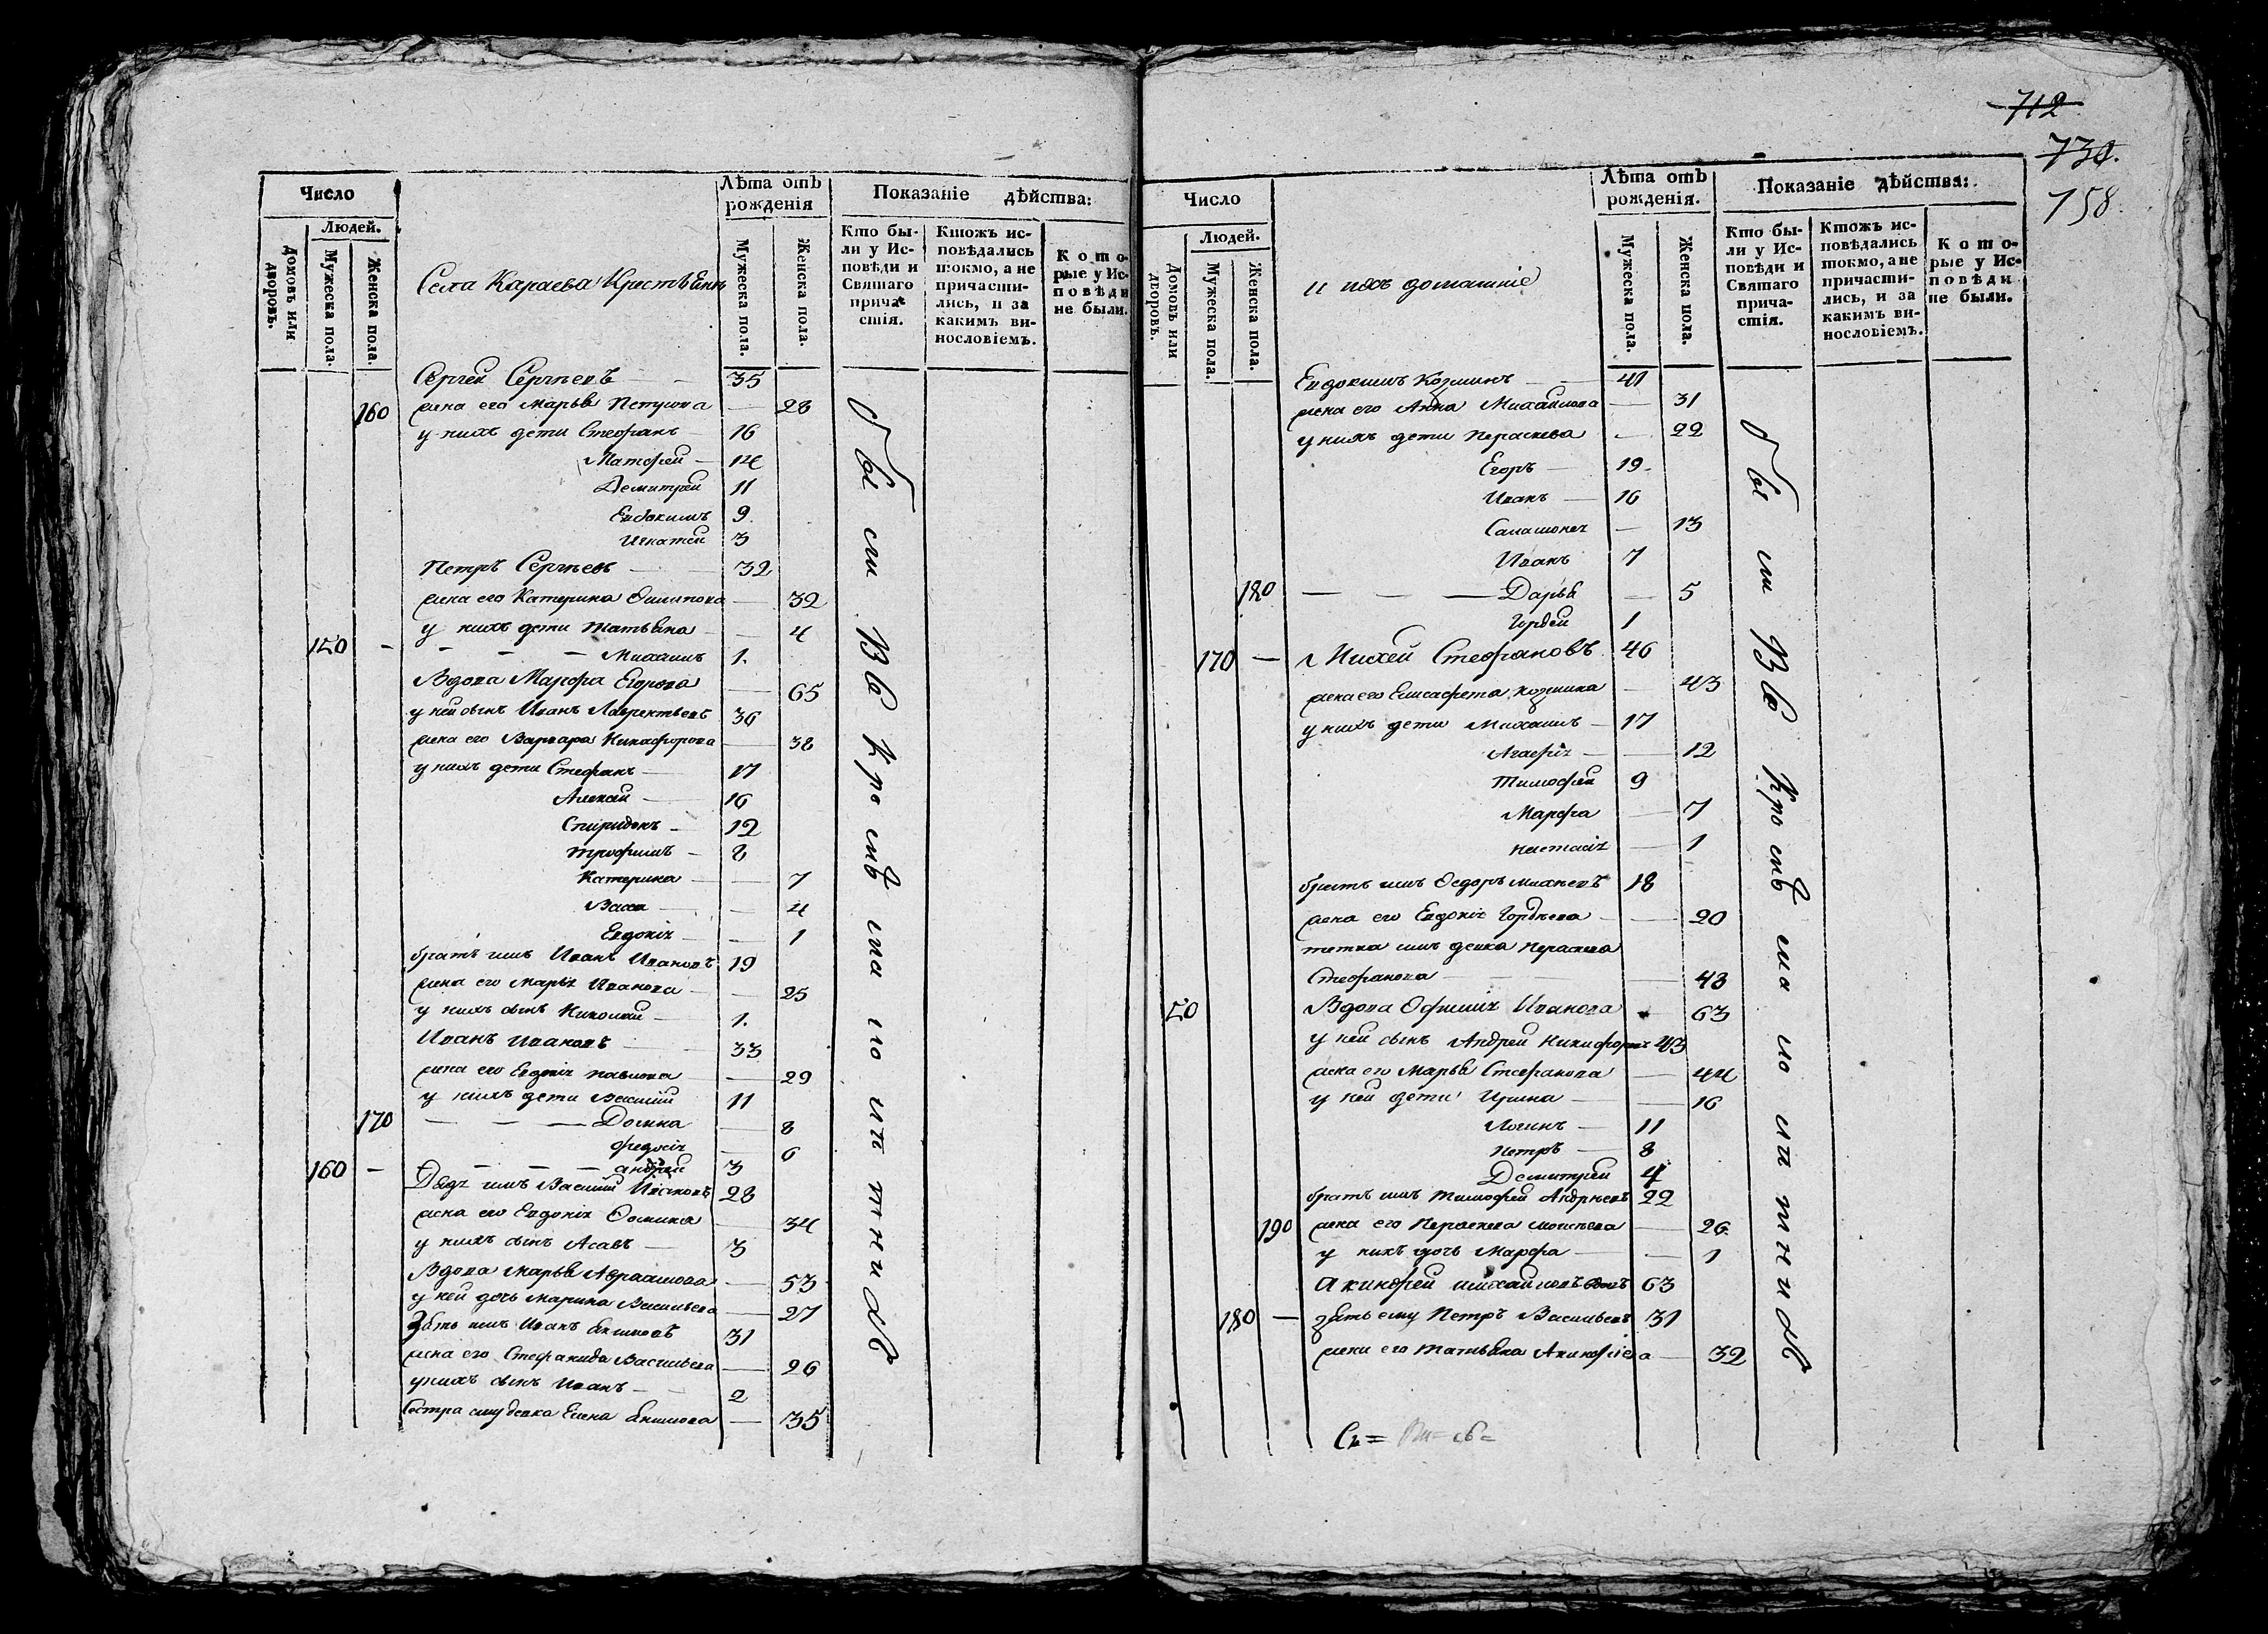 Число
Людей.
Домовъ или дворовъ.
Мужеска пола.
Женска пола.
Села Караева Крестьяня
Лѣта отъ рожденія
Мужеска пола.
Женска пола.
Показаніе дѣйства:
Кто бы-
ли у Ис-
повѣди и
Святаго
прича-
стія.
Ктожъ ис-
повѣдались
токмо, а не
причасти-
лись, и за
какимъ ви-
нословіемъ.
Кото-
рые у Ис-
повѣди
не были.
Сергей Сергѣевъ 35
160 жена его Марья Петрова 28
у нихъ дети Стефанъ 16
Матфей 14
Демитрей 11
Евдокимъ 9
Игнатей 3
Петръ Сергѣевъ 32
жена его Катерина 32
у нихъ дети Татьяна 4
150 Михаилъ 1
Вдова Марфа Егорова 65
у ней сынъ Иванъ Лаврентьевъ 36
жена его Варвара Никифорова 38
у нихъ дети Стефанъ 17
Алексей 16
Спиридонъ 12
Трофимъ 8
Катерина 7
Васса 4
Евдокія 1
братъ имъ Иванъ Ивановъ 19
жена его Марья Иванова 25
у нихъ сынъ Николай 1
Иванъ Ивановъ 33
жена его Евдокія Павлова 29
у нихъ дети Василий 11
170 Домна 8
Федосія 6
160 Андрей 3
Дядя имъ Василий Ивановъ 28
жена его Евдокія Фомина 34
у нихъ сынъ Асавъ 3
Вдова Марья Авраамова 53
у ней дочь Марина Васильева 27
Зять имъ Иванъ Екимовъ 31
жена его Стефанида Васильева 26
у нихъ сынъ Иванъ 2
Сестра ему девка Елена Екимова 35
712
730.
158.
Число
Людей.
Домовъ или дворовъ.
Мужеска пола.
Женска пола.
и ихъ домашніе
Лѣта отъ рожденія.
Мужеска пола.
Женска пола.
Показаніе дѣйства:
Кто бы-
ли у Ис-
повѣди и
Святаго
прича-
стія.
Ктожъ ис-
повѣдались
токмо, а не
причасти-
лись, и за
какимъ ви-
нословіемъ.
Кото-
рые у Ис-
повѣди
не были.
Евдокимъ Козминъ 41
жена его Анна Михайлова 31
у нихъ дети Пераскева 22
Егоръ 19
Иванъ 16
Саламонея 13
Иванъ 7
180 Дарья 5
Гордей 1
170 Михей Стефановъ 46
жена его Елисафета Козмина 43
у нихъ дети Михаилъ 17
Агафія 12
Тимофей 9
Марфа 7
Настасія 1
братъ имъ Федоръ Михѣевъ 18
жена его Евдокія Гордѣева 20
тетка имъ девка Пераскева
Стефанова 43
50 Вдова Офимія Иванова 63
у ней сынъ Андрей Никифоровъ 43
жена его Марья Стефанова 44
у ней дети Ирина 16
Логинъ 11
Петръ 8
Демитрей 4
братъ имъ Тимофей Андрѣевъ 22
190 жена его Пераскева Моисѣева 26
у нихъ дочь Марфа 1
Акинфей Михайловъ вдовъ 63
180 зять ему Петръ Васильевъ 31
жена его Татьяна Акинфіева 32